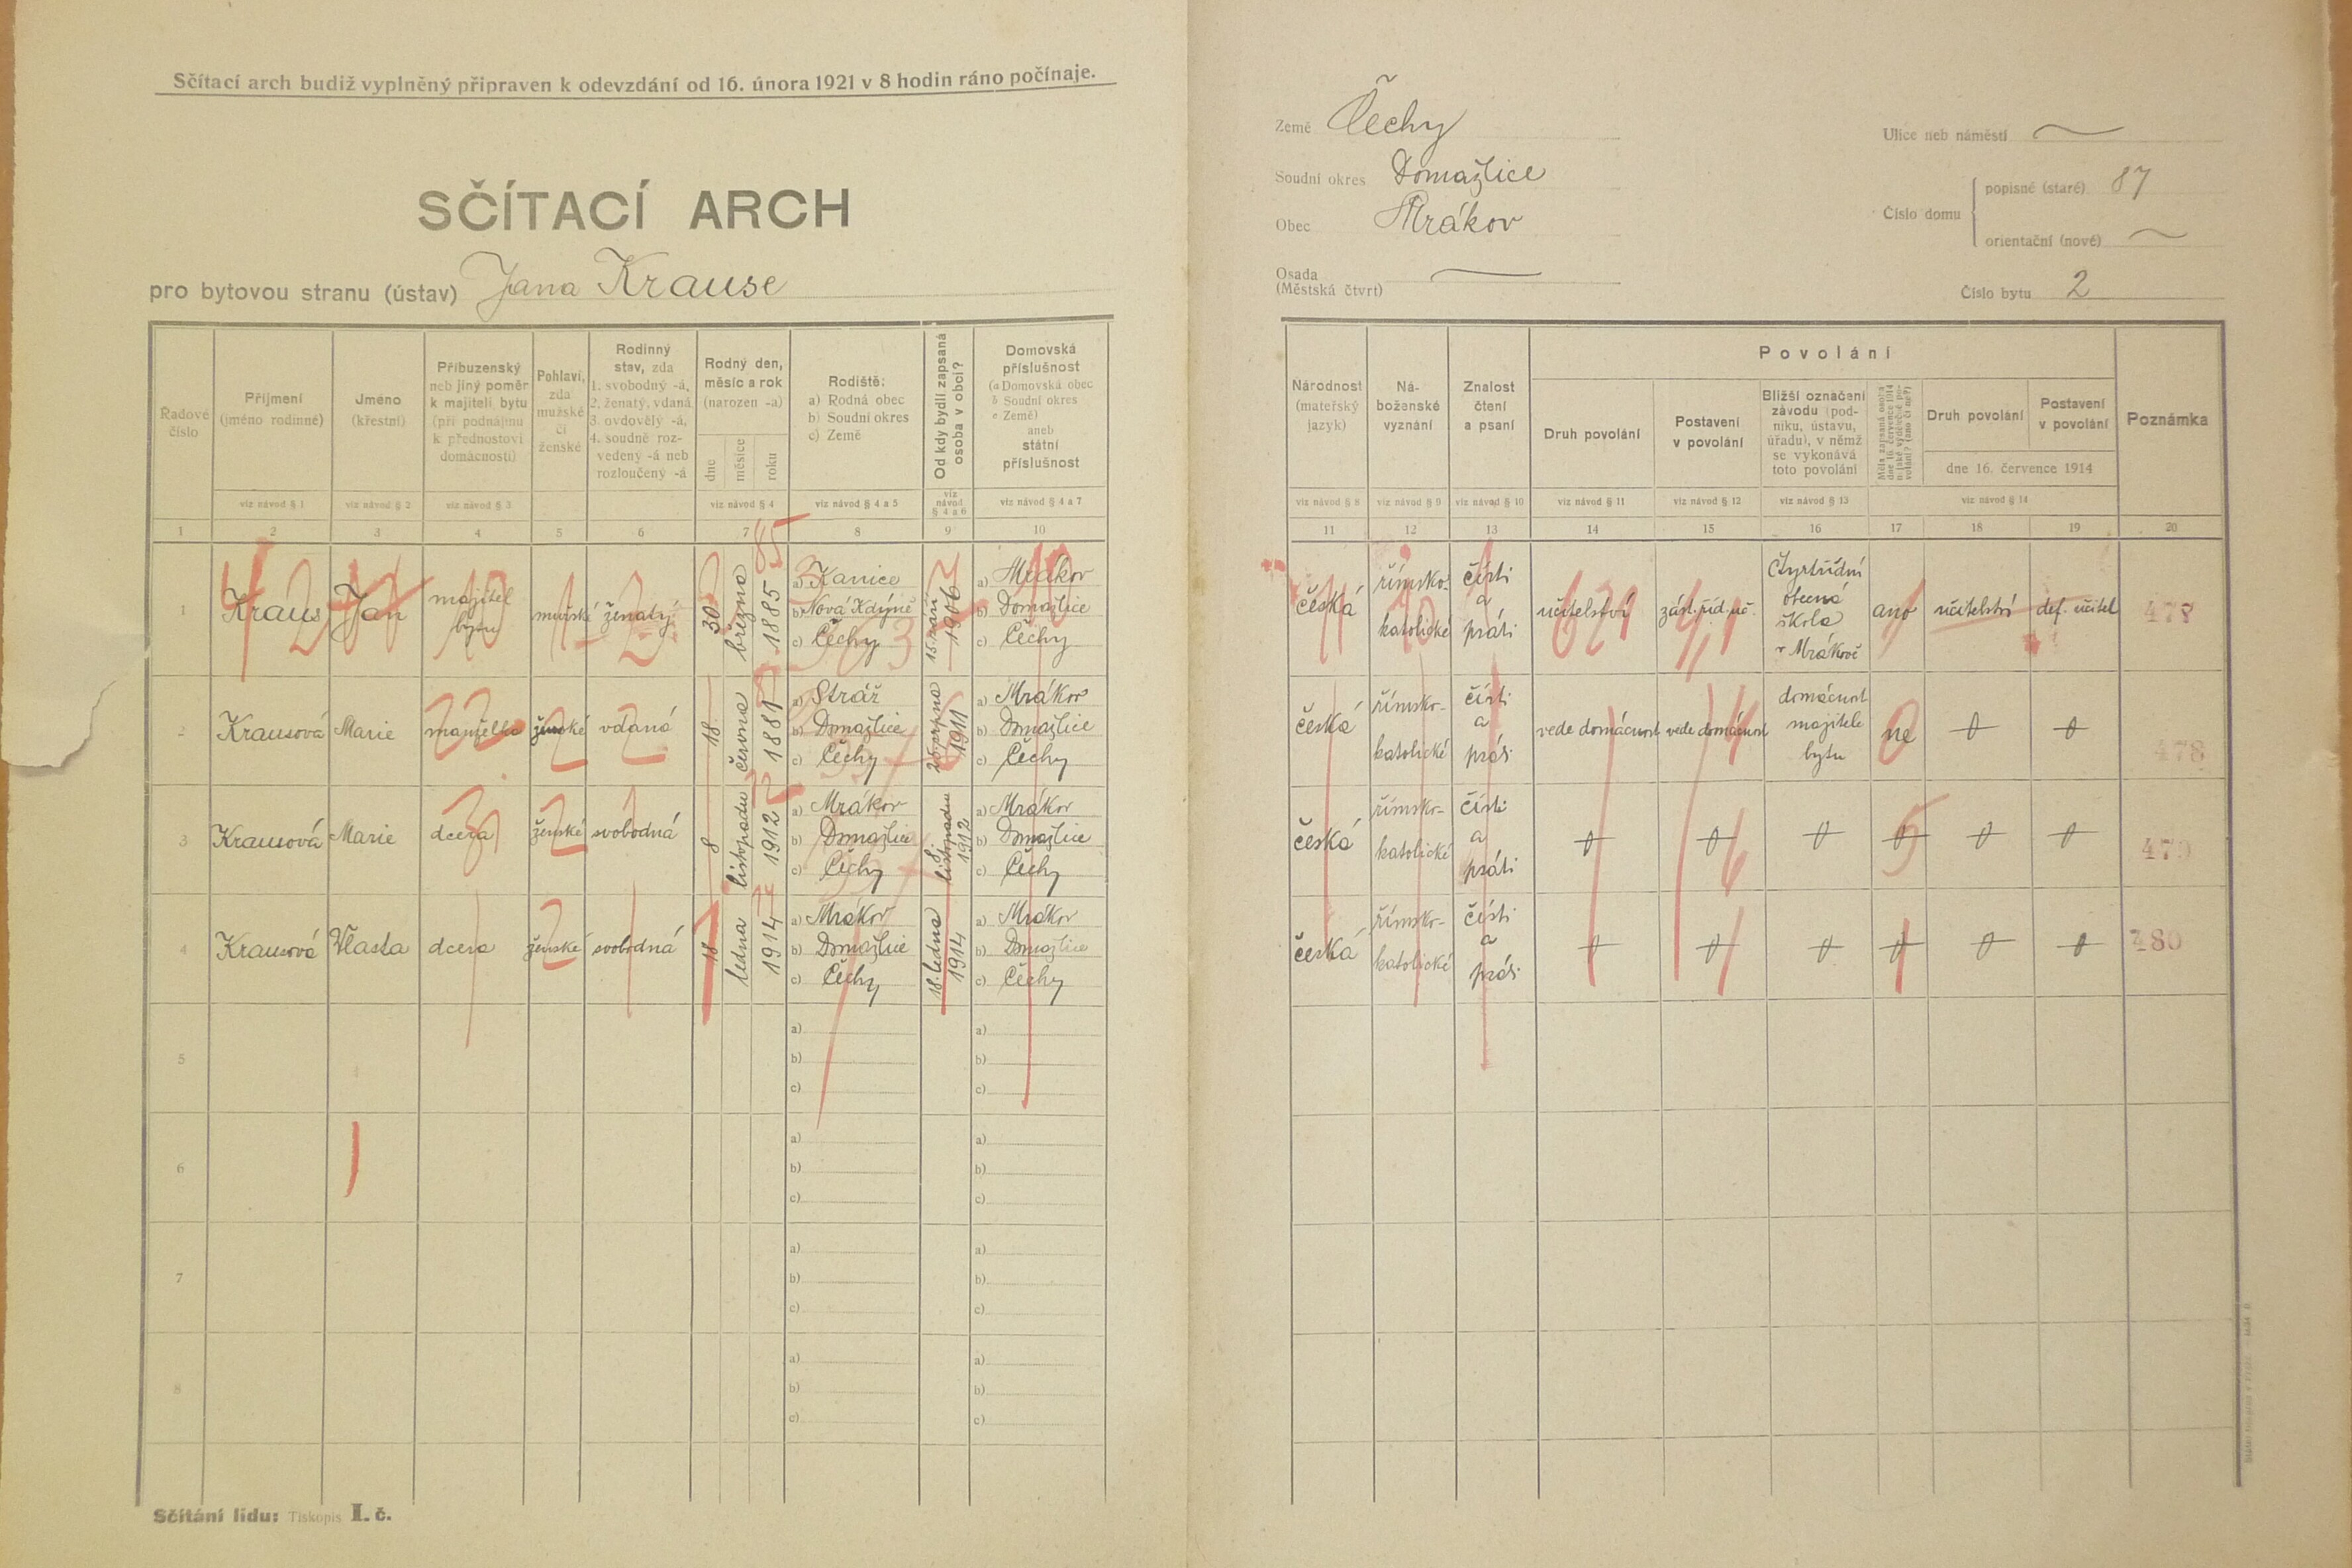 Sčítací arch budiž vyplněný připraven k odevzdání od 16. února 1921 v 8 hodin ráno počínaje.
SČÍTACÍ ARCH
pro bytovou stranu (ústav) Jana Krause
Země Čechy
Soudní okres Domažlice
Obec Mrákov
Osada
(Městská čtvrť)
Ulice neb náměstí
Číslo domu
popisné (staré) 87
orientační (nové)
Číslo bytu 2
Řadové číslo
Příjmení (jméno rodinné)
Jméno (křestní)
Příbuzenský neb jiný poměr k majiteli bytu (při podnájmu k přednostovi domácnosti)
Pohlaví, zda mužské či ženské
Rodinný stav, zda 1. svobodný -á, 2. ženatý, vdaná 3. ovdovělý -á, 4. soudně rozvedený -á neb rozloučený -á
Rodný den, měsíc a rok (narozen -a)
dne měsíce roku
Rodiště: a) Rodná obec b) Soudní okres c) Země
Od kdy bydlí zapsaná osoba v obci?
Domovská příslušnost (a Domovská obec b Soudní okres c Země) aneb státní příslušnost
Národnost (mateřský jazyk)
Náboženské vyznání
Znalost čtení a psaní
Povolání
Druh povolání
Postavení v povolání
Bližší označení závodu (podniku, ústavu, úřadu), v němž se vykonává toto povolání
Druh povolání
Postavení v povolání
dne 16. července 1914
Poznámka
viz návod § 1 viz návod § 2 viz návod § 3 viz návod § 4 viz návod § 4 a 5 viz návod § 4 a 6 viz návod § 4 a 7 viz návod § 8 viz návod § 9 viz návod § 10 viz návod § 11 viz návod § 12 viz návod § 13 viz návod § 14
1 2 3 4 5 6 7 8 9 10 11 12 13 14 15 16 17 18 19 20
1 Kraus Jan majitel bytu mužské ženatý 30 března 1885 a) Kanice b) Nová Kdýně c) Čechy 15. září 1906 a) Mrákov b) Domažlice c) Čechy česká římsko-katolické čísti a psáti učitelství zást. říd. uč. Čtyřtřídní obecná škola v Mrákově ano učitelství def. učitel 478
2 Krausová Marie manželka ženské vdaná 18 června 1889 a) Stráž b) Domažlice c) Čechy srpna 1911 a) Mrákov b) Domažlice c) Čechy česká římsko-katolické čísti a psáti vede domácnost vede domácnost domácnost majitele bytu ne 0 0 478
3 Krausová Marie dcera ženské svobodná 8 listopadu 1912 a) Mrákov b) Domažlice c) Čechy 8. listopadu 1912 a) Mrákov b) Domažlice c) Čechy česká římsko-katolické čísti a psáti 0 0 0 0 0 0 479
4 Krausová Vlasta dcera ženské svobodná 18 ledna 1914 a) Mrákov b) Domažlice c) Čechy 18. ledna 1914 a) Mrákov b) Domažlice c) Čechy česká římsko-katolické čísti a psáti 0 0 0 0 0 0 480
5 a) b) c) a) b) c)
6 a) b) c) a) b) c)
7 a) b) c) a) b) c)
8 a) b) c) a) b) c)
Sčítání lidu: Tiskopis I. č.